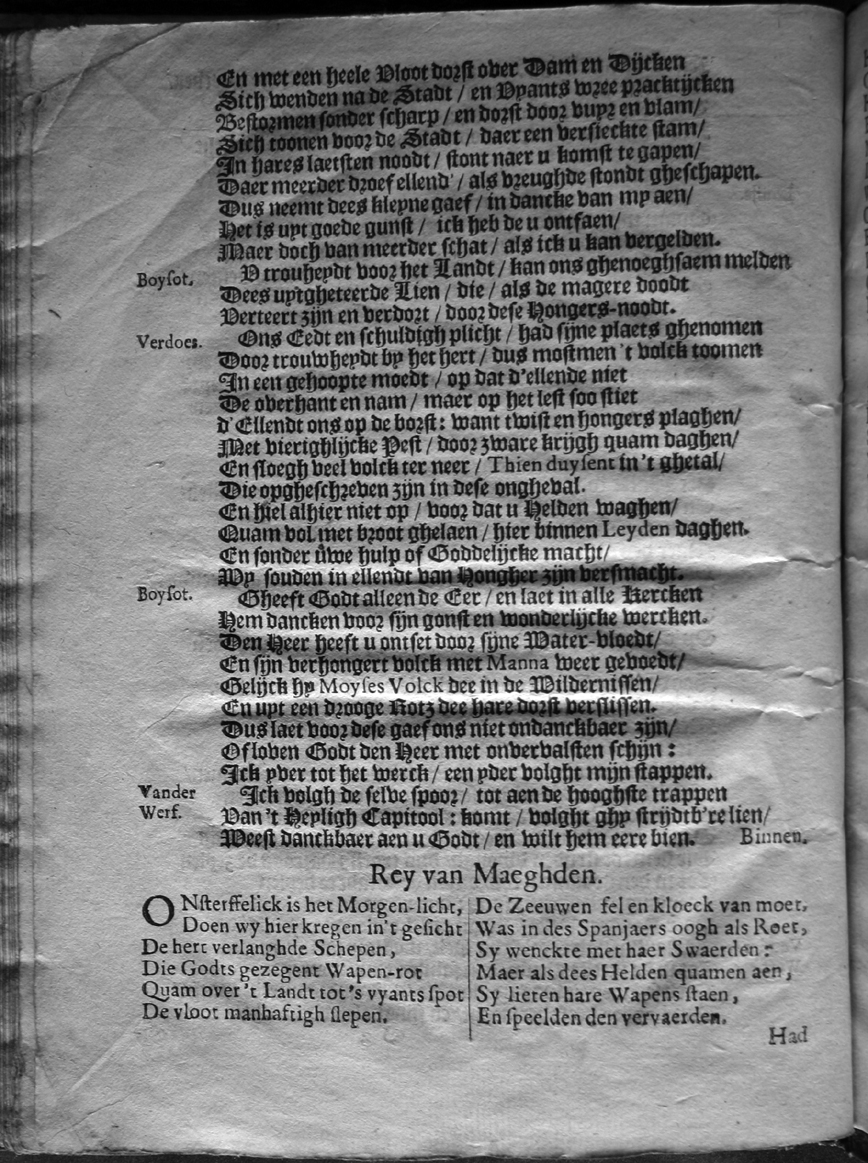 En met een heele Vloot dorst over Dam en Dijcken
Sich wenden na de Stadt / en Vyants wree practijcken
Bestormen sonder scharp / en dorst door vuyr en vlam /
Sich toonen voor de Stadt / daer een versieckte stam /
In hares laetsten noodt / stont naer u komst te gapen /
Daer meerder droef ellend' / als vreughde stondt gheschapen.
Dus neemt dees kleyne gaef / in dancke van my aen /
Het is uyt goede gunst / ick heb de u ontfaen /
Maer doch van meerder schat / als ick u kan vergelden.
Boysot. V trouheydt voor het Landt / kan ons ghenoeghsaem melden
Dees uytgheteerde Lien / die / als de magere doodt
Verteert zijn en verdort / door dese Hongers-noodt.
Verdoes. Ons Eedt en schuldigh plicht / had sijne plaets ghenomen
Door trouwheydt by het hert / dus mostmen 't volck toomen
In een gehoopte moedt / op dat d'ellende niet
De overhant en nam / maer op het lest soo stiet
d'Ellendt ons op de borst : want twist en hongers plaghen /
Met vierighlijcke Pest / door zware krijgh quam daghen /
En sloegh veel volck ter neer / Thien duysent in 't ghetal /
Die opgheschreven zijn in dese ongheval.
En hiel alhier niet op / voor dat u Helden waghen /
Quam vol met broot ghelaen / hier binnen Leyden daghen.
En sonder uwe hulp of Goddelijcke macht /
Wy souden in ellendt van Hongher zijn versmacht.
Boysot. Gheeft Godt alleen de Eer / en laet in alle Kercken
Hem dancken voor sijn gonst en wonderlijcke wercken.
Den Heer heeft u ontset door sijne Water-vloedt /
En sijn verhongert volck met Manna weer gevoedt /
Gelijck hy Moyses Volck dee in de Wildernissen /
En uyt een drooge Rotz dee hare dorst verslissen.
Dus laet voor dese gaef ons niet ondanckbaer zijn /
Of loven Godt den Heer met onvervalsten schijn :
Ick yver tot het werck / een yder volght mijn stappen.
Vander Ick volgh de selve spoor / tot aen de hooghste trappen
Werf. Van 't Heyligh Capitool : komt / volght ghy strijdtb're lien /
Weest danckbaer aen u Godt / en wilt hem eere bien. Binnen.
Rey van Maeghden.
ONsterffelick is het Morgen-licht,
Doen wy hier kregen in't gesicht
De hert verlanghde Schepen,
Die Godts gezegent Wapen-rot
Quam over 't Landt tot 's vyants spot
De vloot manhaftigh slepen.
De Zeeuwen fel en kloeck van moet,
Was in des Spanjaers oogh als Roet,
Sy wenckte met haer Swaerden:
Maer als dees Helden quamen aen,
Sy lieten hare Wapens staen,
En speelden den vervaerden.
Had